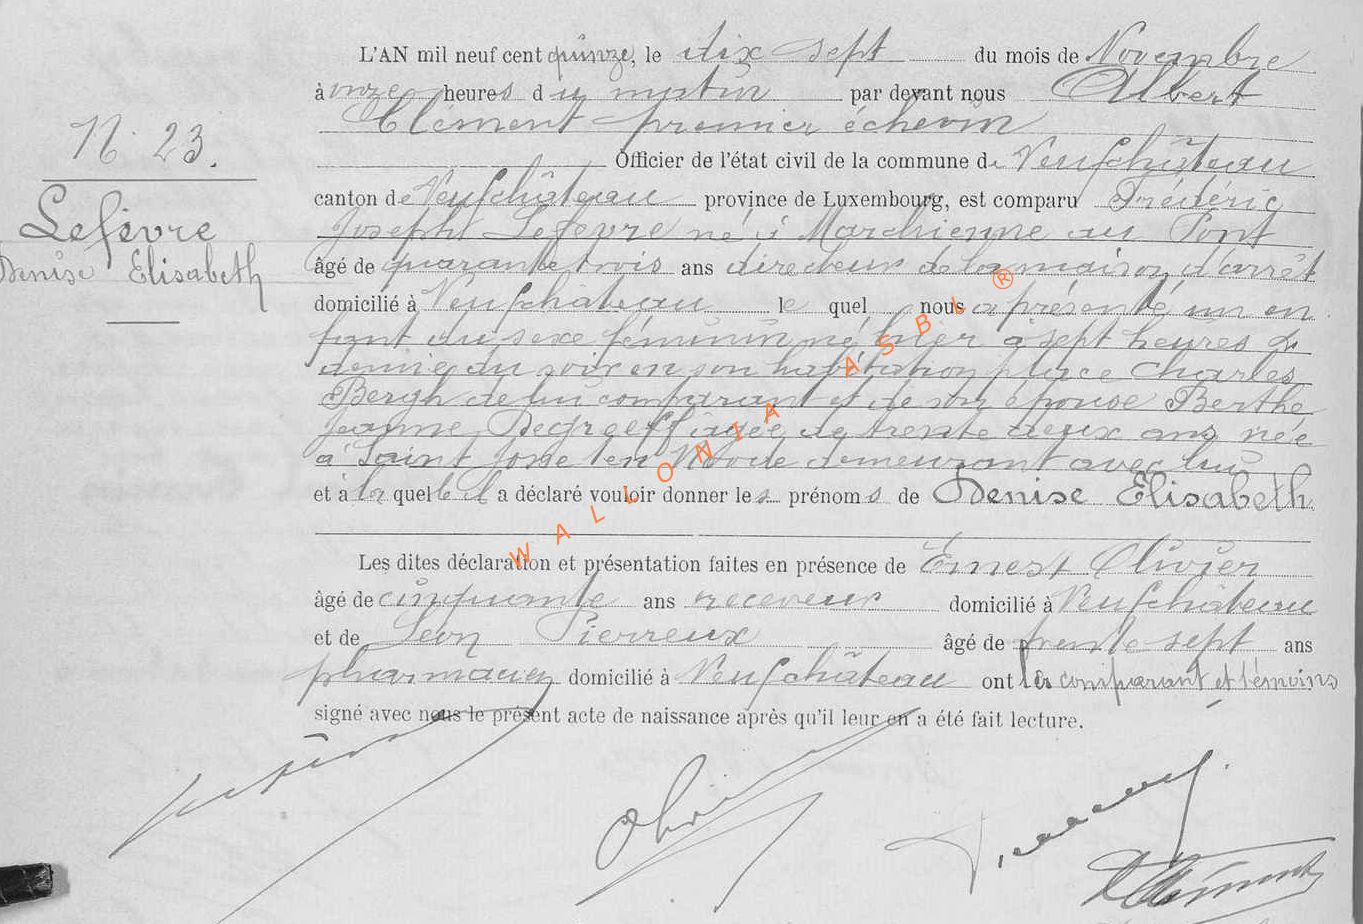 L'AN mil neuf cent quinze, le dix sept du mois de Novembre
à onze heures du matin par devant nous Albert
Clément premier échevin
N. 23.
Officier de l'état civil de la commune de Neufchâteau
canton de Neufchâteau province de Luxembourg, est comparu Frédéric
Lefèvre
Joseph Lefevre né à Marchienne au Pont
Denise Elisabeth
âgé de quarante trois ans directeur de la maison d'arrêt
domicilié à Neufchâteau le quel nous a présenté un en
fant du sexe féminin né hier à sept heures &
demie du soir en son habitation place Charles
Bergh de lui comparant et de son épouse Berthe
Jeanne Degreeff âgée de trente deux ans née
à Saint Josse ten Noode demeurant avec lui
et à la quelle il a déclaré vouloir donner les prénoms de Denise Elisabeth
Les dites déclaration et présentation faites en présence de Ernest Olivier
âgé de cinquante ans receveur domicilié à Neufchâteau
et de Léon Pierreux âgé de trente sept ans
pharmacien domicilié à Neufchâteau ont les comparant et témoins
signé avec nous le présent acte de naissance après qu'il leur en a été fait lecture.
WALLONIA ASBL ®